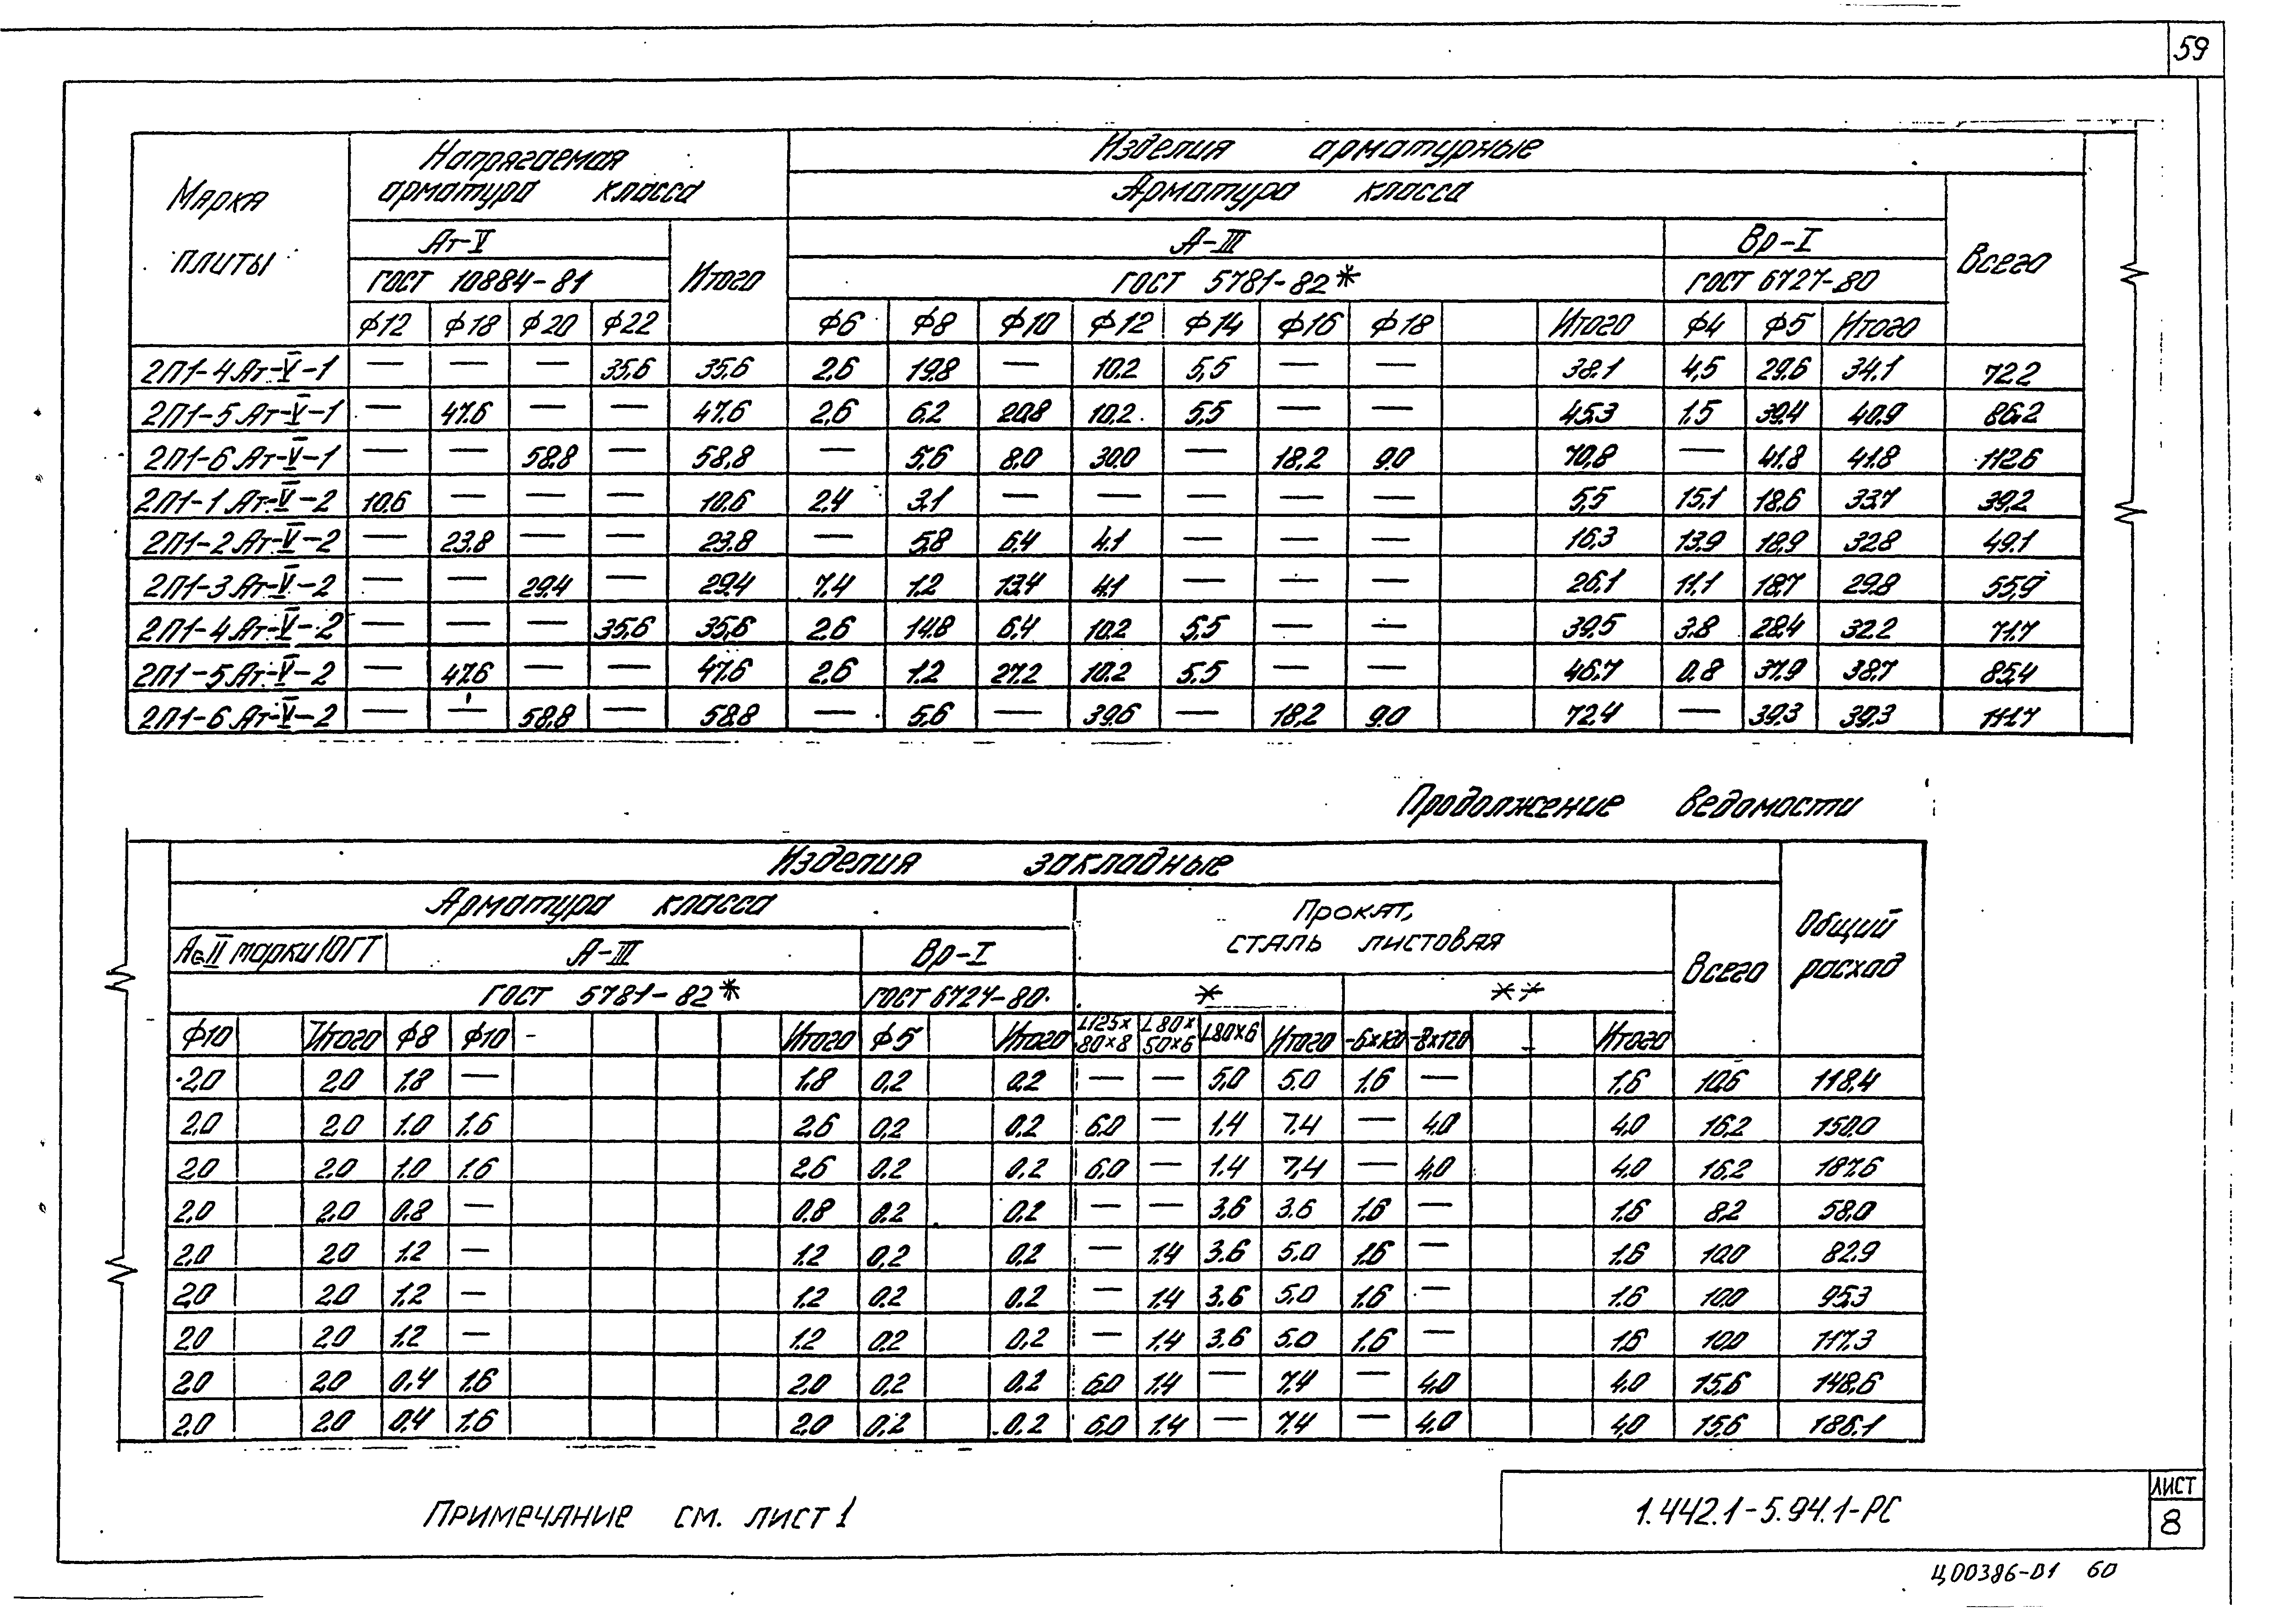 59
Марка плиты
Напрягаемая арматура класса
Изделия арматурные
Арматура класса
Всего
Ат-V
Итого
А-III
Вр-I
ГОСТ 10884-81
ГОСТ 5781-82*
ГОСТ 6727-80
ф12 ф18 ф20 ф22 ф6 ф8 ф10 ф12 ф14 ф16 ф18 Итого ф4 ф5 Итого
2П1-4Ат-V-1 — — — 35,6 35,6 2,6 19,8 — 10,2 5,5 — — 38.1 4,5 29.6 34.1 72.2
2П1-5Ат-V-1 — 47.6 — — 47.6 2,6 6.2 20,8 10,2 5,5 — — 45,3 1.5 39.4 40.9 86,2
2П1-6Ат-V-1 — — 58,8 — 58,8 — 5,6 8,0 30,0 — 18,2 9,0 70,8 — 41.8 41.8 112,6
2П1-1Ат-V-2 10,6 — — — 10,6 2,4 3,1 — — — — — 5,5 15,1 18,6 33,7 39,2
2П1-2Ат-V-2 — 23,8 — — 23,8 — 5,8 6,4 4.1 — — — 16,3 13,9 18,9 32,8 49.1
2П1-3Ат-V-2 — — 29,4 — 29,4 7,4 1.2 13,4 4.1 — — — 26,1 11,1 18,7 29.8 55,9
2П1-4Ат-V-2 — — — 35,6 35,6 2,6 14,8 6,4 10,2 5,5 — — 39,5 3.8 28,4 32,2 71.7
2П1-5Ат-V-2 — 47.6 — — 47.6 2,6 1.2 27,2 10,2 5,5 — — 46.7 0,8 37,9 38,7 85,4
2П1-6Ат-V-2 — — 58,8 — 58,8 — 5,6 — 39,6 — 18,2 9,0 72,4 — 39,3 39,3 111.7
Продолжение ведомости
Изделия закладные
Общий расход
Арматура класса
Прокат, сталь листовая
Всего
Ас-II марки 10ГТ
А-III
Вр-I
ГОСТ 5781-82*
ГОСТ 6727-80
*
**
ф10 Итого ф8 ф10 Итого ф5 Итого L125×80×8 L80×50×6 L80×6 Итого -6×120 -8×120 Итого
2,0 2,0 1.8 — 1.8 0,2 0,2 — — 5,0 5.0 1.6 — 1.6 10,6 118,4
2,0 2,0 1.0 1.6 2,6 0,2 0,2 6,0 — 1.4 7.4 — 4,0 4,0 16,2 150,0
2,0 2,0 1.0 1.6 2,6 0.2 0,2 6,0 — 1.4 7,4 — 4,0 4,0 16,2 187,6
2,0 2,0 0,8 — 0,8 0,2 0,2 — — 3,6 3.6 1.6 — 1.6 8,2 58,0
2,0 2,0 1.2 — 1.2 0,2 0,2 — 1.4 3.6 5.0 1.6 — 1.6 10,0 82.9
2,0 2,0 1.2 — 1.2 0,2 0,2 — 1.4 3.6 5.0 1.6 — 1.6 10,0 95,3
2,0 2,0 1.2 — 1.2 0,2 0,2 — 1.4 3.6 5.0 1.6 — 1.6 10,0 117.3
2,0 2,0 0,4 1.6 2,0 0,2 0,2 6,0 1.4 — 7.4 — 4,0 4,0 15,6 148,6
2,0 2,0 0,4 1.6 2,0 0,2 0,2 6,0 1.4 — 7.4 — 4,0 4,0 15,6 186.1
Примечание см. лист 1
1.442.1-5.94.1-РС
ЛИСТ
8
Ц00386-01 60